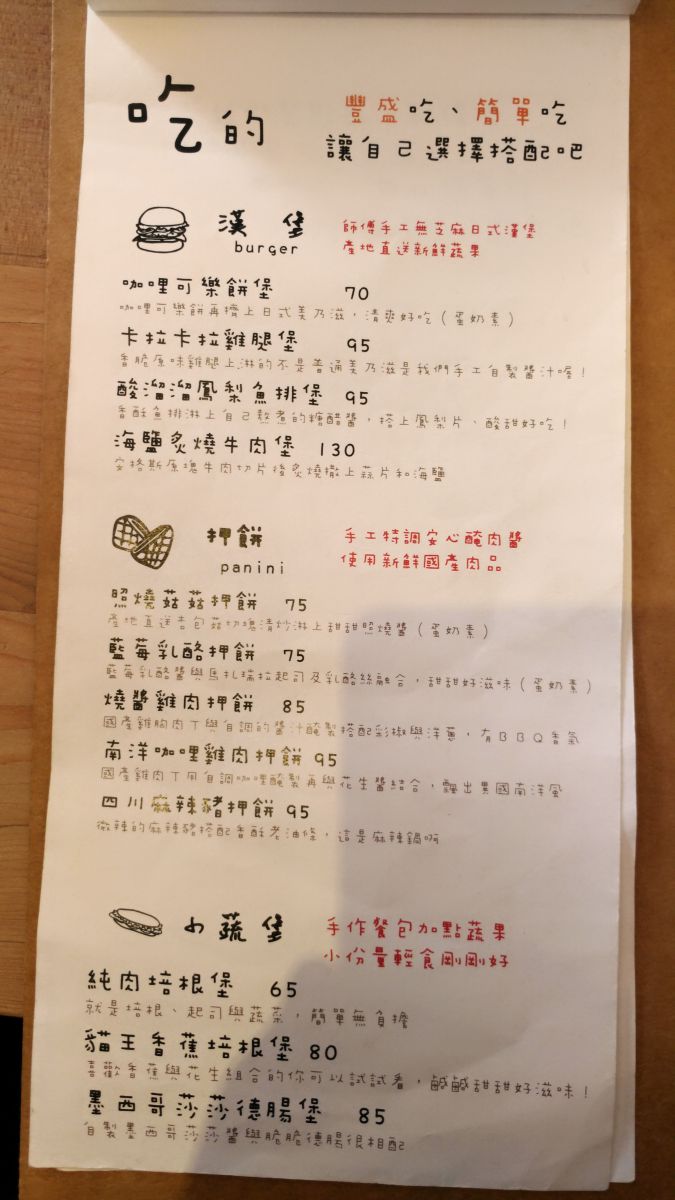 吃的
豐盛吃、簡單吃
讓自己選擇搭配吧
漢堡
burger
師傅手工無芝麻日式漢堡
產地直送新鮮蔬果
咖哩可樂餅堡 70
咖哩可樂餅再擠上日式美乃滋，清爽好吃（蛋奶素）
卡拉卡拉雞腿堡 95
香脆原味雞腿上淋的不是普通美乃滋是我們手工自製醬汁喔！
酸溜溜鳳梨魚排堡 95
香酥魚排淋上自己熬煮的糖醋醬，搭上鳳梨片、酸甜好吃！
海鹽炙燒牛肉堡 130
安格斯原塊牛肉切片後炙燒撒上蒜片和海鹽
押餅
panini
手工特調安心醃肉醬
使用新鮮國產肉品
照燒菇菇押餅 75
產地直送杏包菇切塊清炒淋上甜甜照燒醬（蛋奶素）
藍莓乳酪押餅 75
藍莓乳酪醬與馬扎瑞拉起司及乳酪絲融合，甜甜好滋味（蛋奶素）
燒醬雞肉押餅 85
國產雞胸肉丁與自調的醬汁醃製搭配彩椒與洋蔥，有BBQ香氣
南洋咖哩雞肉押餅 95
國產雞肉丁用自調咖哩醃製再與花生醬結合，飄出異國南洋風
四川麻辣豬押餅 95
微辣的麻辣豬搭配香酥老油條，這是麻辣鍋啊
小蔬堡
手作餐包加點蔬果
小份量輕食剛剛好
純肉培根堡 65
就是培根、起司與蔬菜，簡單無負擔
貓王香蕉培根堡 80
喜歡香蕉與花生組合的你可以試試看，鹹鹹甜甜好滋味！
墨西哥莎莎德腸堡 85
自製墨西哥莎莎醬與脆脆德腸很相配